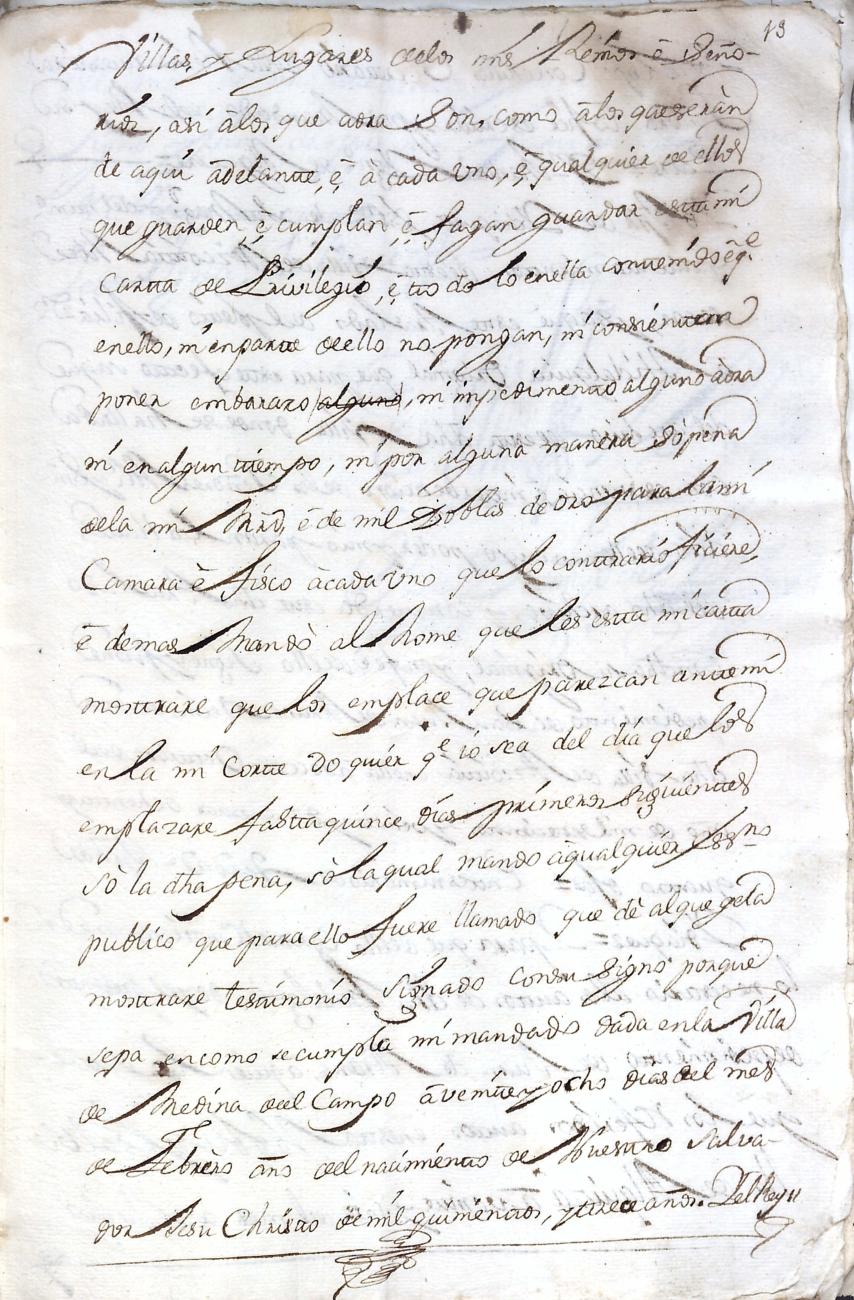 13
Villas, y Lugares de los mis Reinos è Seño-
rios, asi â los que aora Son, como â los que seràn
de aqui adelante, è, à cada uno, è, qualquier de ellos
que guarden, è, cumplan, è, fagan guardar esta mi
Carta de Privilegio, è, todo lo enella contenido è q.e
enello, ni enparte de ello no pongan, ni consientan
poner embarazo alguno, ni impedimento alguno àora
ni en algun tiempo, ni por alguna manera So pena
de la mi Mrd, è de mil Doblas de oro para la mi
Camara è fisco à cada uno que lo contrario ficiere,
è demas Mandò al Home que les esta mi carta
mostrare que los emplace que parezcan ante mi
en la mi Corte do quier q.e io sea del dia que los
emplazare fasta quince dias primeros Siguientes
sò la dha pena, sò la qual mando à qualquier Essno
publico que para ello fuere llamado que dè al que gela
mostrare testimonio signado consu Signo porque
sepa en como se cumple mi mandado dada en la Villa
de Medina del Campo à veinte y ocho dias del mes
de Febrero año del nacimiento de Nuestro Salva-
dor Jesu Christo de mil quinientos, y trece años. Yo el Rey //